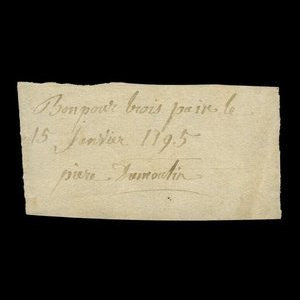 Bon pour trois pain le
15 Janvier 1795
piere Dumoulin